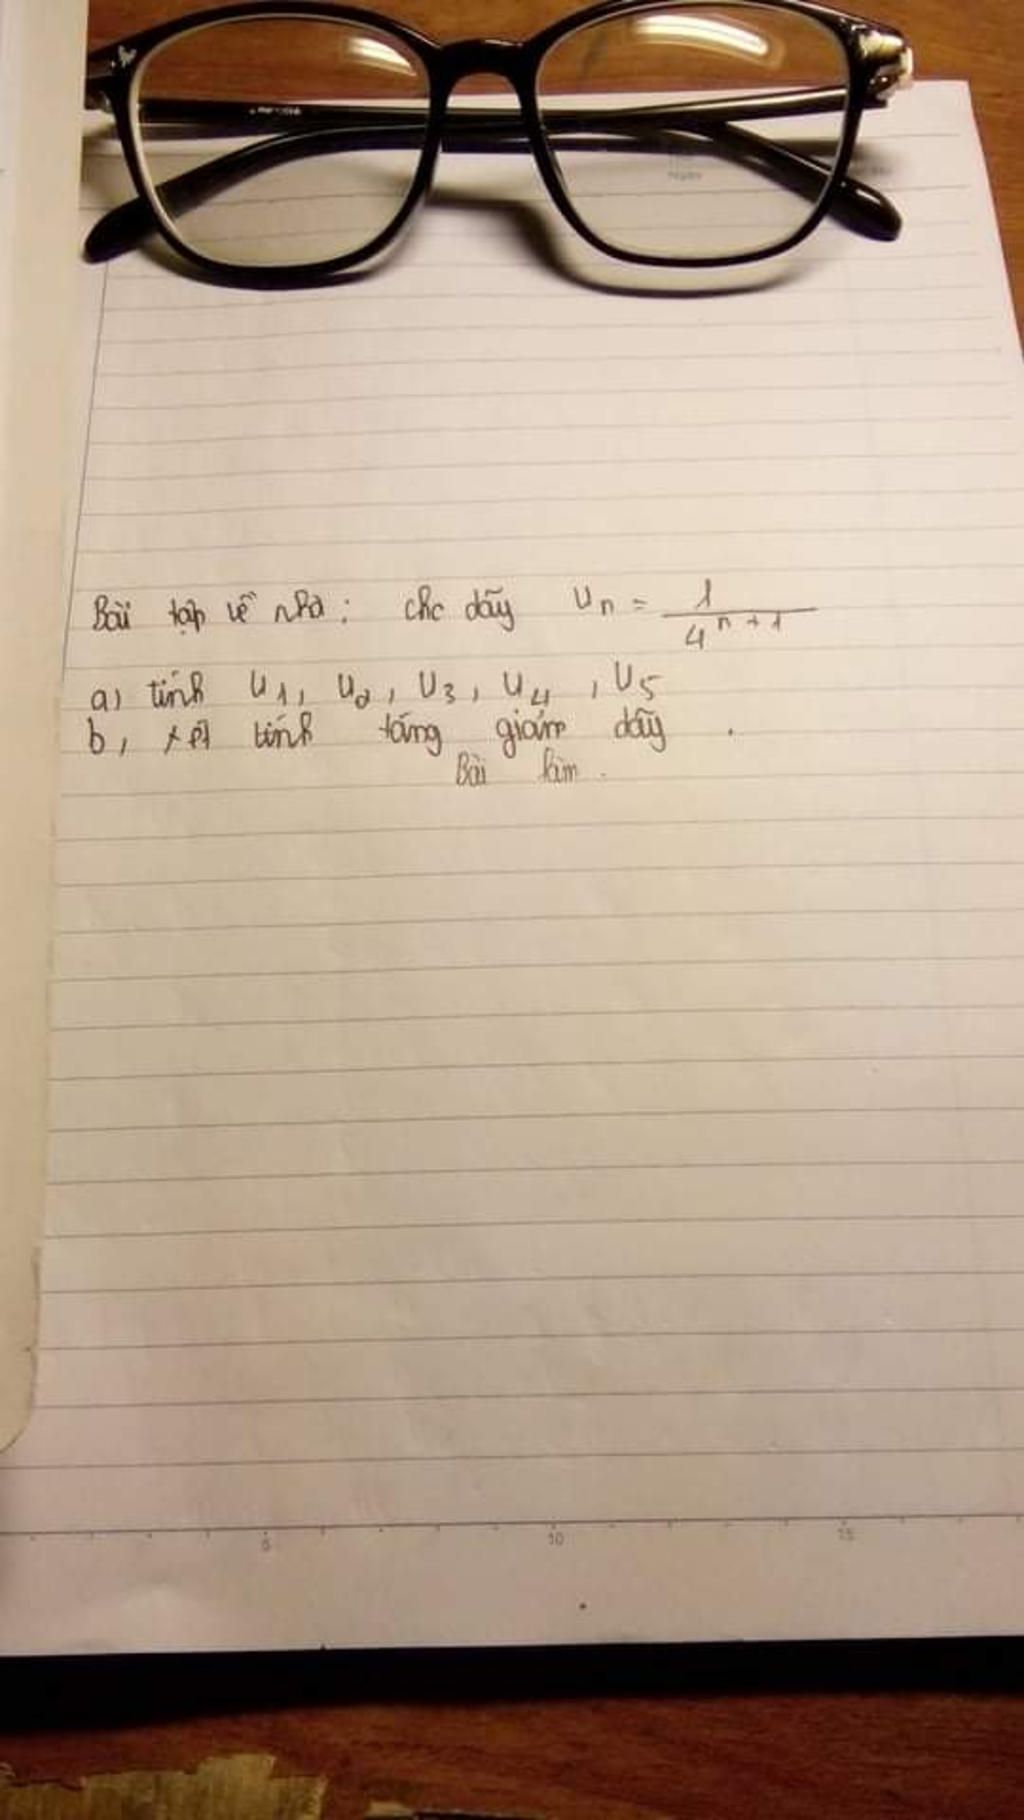 Bài tập về nhà: cho dãy Un = 1/4^(n+1)
a) tính U1, U2, U3, U4, U5
b, xét tính tăng giảm dãy.
Bài làm.
5 10 15